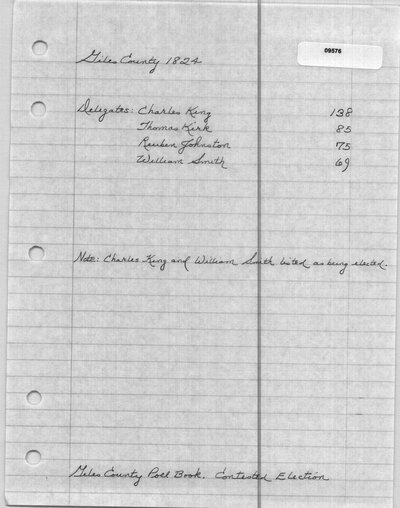 09576
Giles County 1824
Delegates: Charles King 138
Thomas Kirk 85
Reuben Johnston 75
William Smith 69
Note: Charles King and William Smith listed as being elected.
Giles County Poll Book. Contested Election